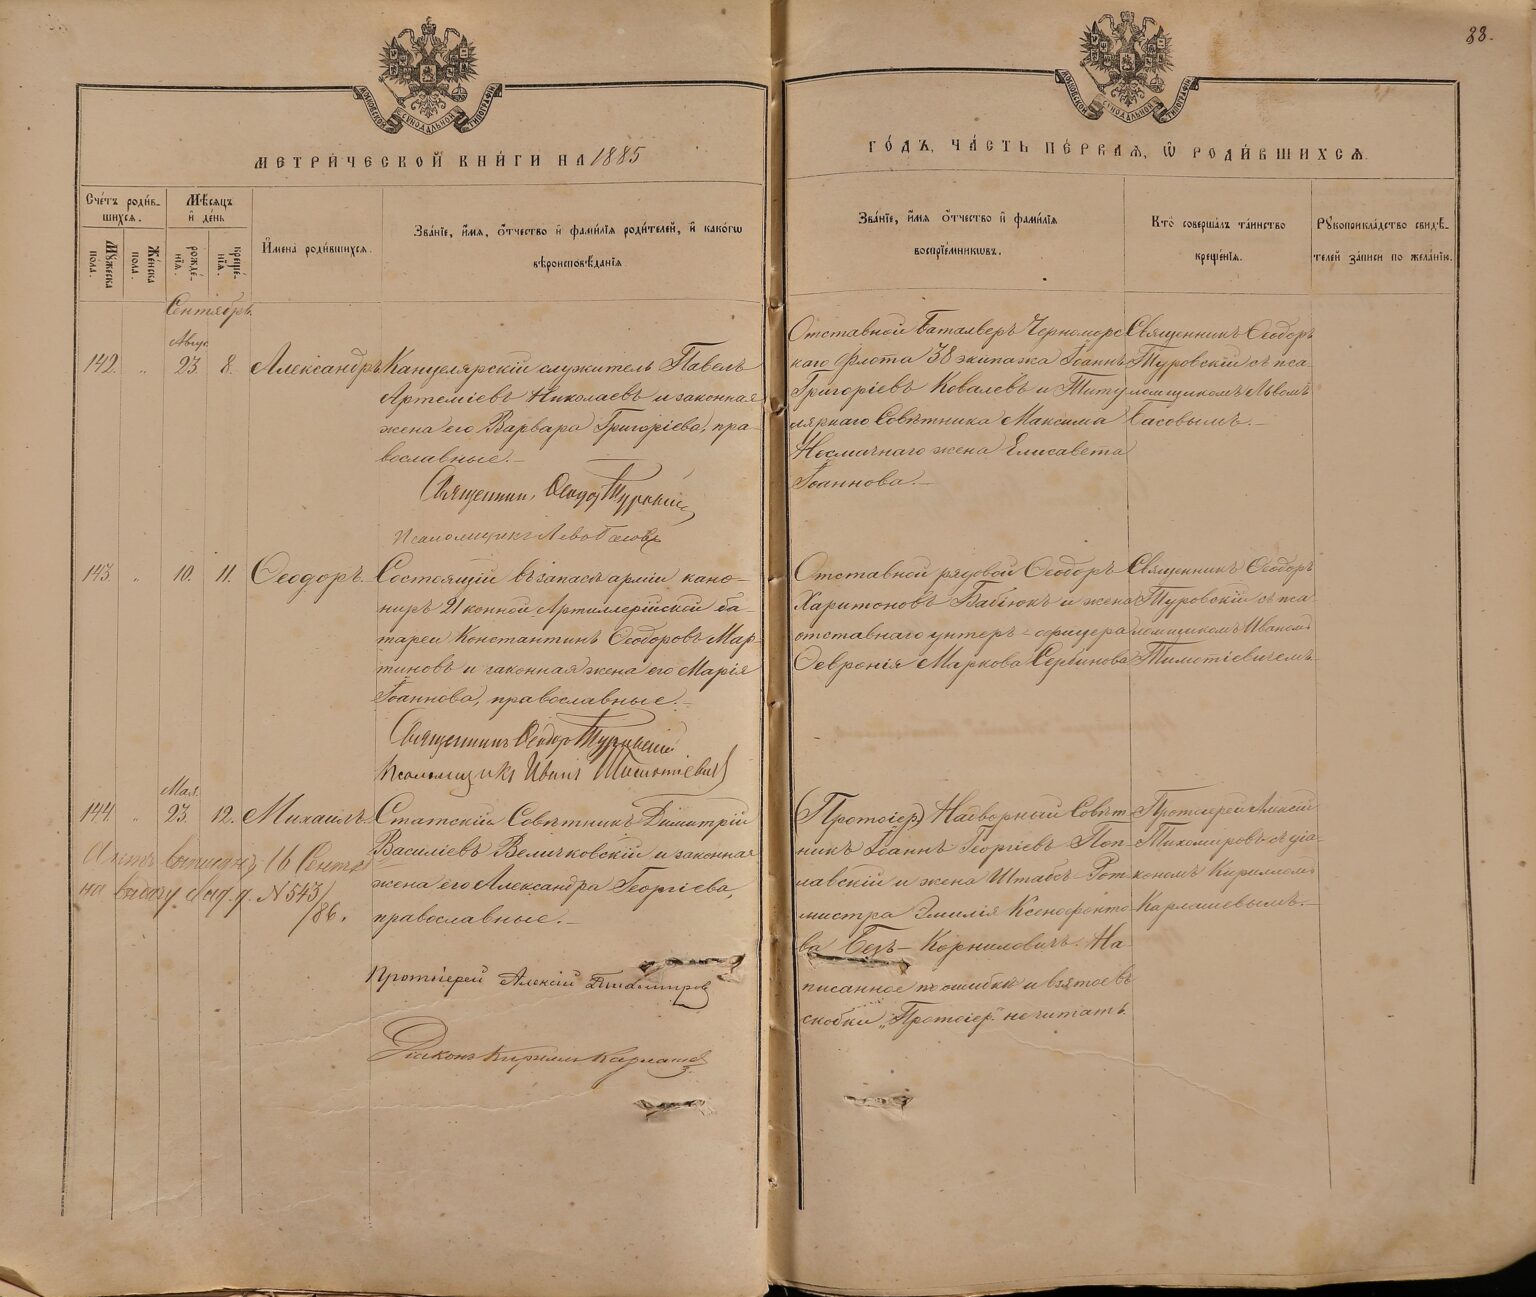 33.
МОСКОВСКОЙ СѴНОДАЛЬНОЙ ТИПОГРАФІИ
МОСКОВСКОЙ СѴНОДАЛЬНОЙ ТИПОГРАФІИ
МЕТРИ́ЧЕСКОЙ КНИ́ГИ НА 1885
ГО́ДЪ, ЧА́СТЬ ПЕ́РВАЯ, Ѡ҆ РОДИ́ВШИХСЯ.
Сче́тъ роди́в-
шихся.
Мꙋжеска
пола.
Же́нска
пола.
Мѣ́сяцъ
и҆ де́нь
рожде́-
нїя.
креще́-
нїя.
И҆мена̀ роди́вшихся.
Зва́нїе, и҆́мя, ѻ҆́тчество и҆ фами́лїя роди́телей, и҆ како́гѡ
вѣроисповѣ́данїя
Зва́нїе, и҆́мя ѻ҆́тчество и҆ фами́лїя
воспрїе́мникѡвъ.
Кто̀ соверша́лъ та́инство
креще́нїя.
Рꙋкоприкла́дство свидѣ́-
телей за́писи по жела́нїю.
Сентябрь.
Авгус.
142. „ 23. 8. Александръ
Канцелярскій служитель Павелъ
Артеміевъ Николаевъ и законная
жена его Варвара Григоріева, пра-
вославные.—
Священник Ѳеодор Туровскій
Псаломщикъ Левъ Басовъ
Отставной Баталеръ Черноморс
каго Флота 38 экипажа Іоаннъ
Григоріевъ Ковалевъ и Титу
лярнаго Совѣтника Максима
Носмичнаго жена Елисавета
Іоаннова.—
Священникъ Ѳеодоръ
Туровскій съ пса-
ломщикомъ Львомъ
Басовымъ.—
143. „ 10. 11. Ѳеодоръ.
Состоящій въ запасѣ арміи кано-
ниръ 21 конной Артиллерійской ба-
тареи Константинъ Ѳеодоровъ Мар-
тиновъ и законная жена его Марія
Іоаннова, православные.—
Священникъ Ѳеодор Туровскій
Псаломщикъ Иванъ Тимотіевичъ
Отставной рядовой Ѳеодоръ
Харитоновъ Бабіюкъ и жена
отставнаго унтеръ-офицера
Ѳевронія Маркова Сербинова
Священникъ Ѳеодоръ
Туровскій съ пса-
ломщикомъ Иваномъ
Тимотіевичемъ.
Мая.
144. „ 23. 12. Михаилъ.
Статскій Совѣтникъ Димитрій
Василіевъ Величковскій и законная
жена его Александра Георгіева,
православные.—
16 Сентяб
на выдачу свид. д. N 543/
/86.
Протоіерей Алексій Тихомиров
Діаконъ Кириллъ Карлашев
(Протоіер) Надворный Совѣт-
никъ Іоаннъ Георгіевъ Поп-
лавскій и жена Штабс-Рот
мистра Эмилія Ксенофонто
ва Безъ-Корниловичъ. На
писанное по ошибкѣ и взятое въ
скобки „Протоіер." не читать
Протоіерей Алексій
Тихомировъ съ діа-
кономъ Кирилломъ
Карлашевымъ.—